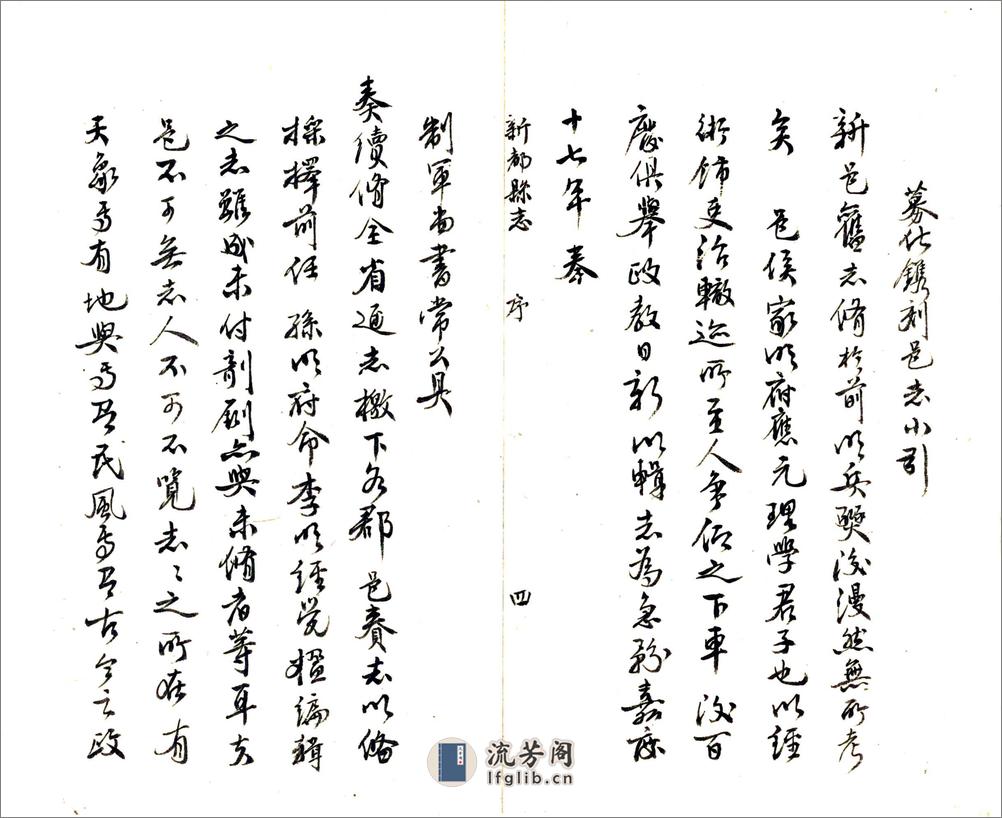 募化鐫刻邑志小引
新邑舊志脩於前明兵燹後漫然無所考
矣 邑侯家明府應元理學君子也以經
術飾吏治轍迹所至人爭仰之下車後百
廢俱舉政教日新以輯志為急務嘉慶
十七年奉
新都縣志 序 四
制軍尚書常公具
奏續脩全省通志檄下各郡邑賫志以備
採擇前任孫明府命李明經覺楹編輯
之志雖成未付剞劂亦與未脩者等耳夫
邑不可無志人不可不覽志志之所在有
天象焉有地輿焉有民風焉有古今之政
流芳阁
lfglib.cn